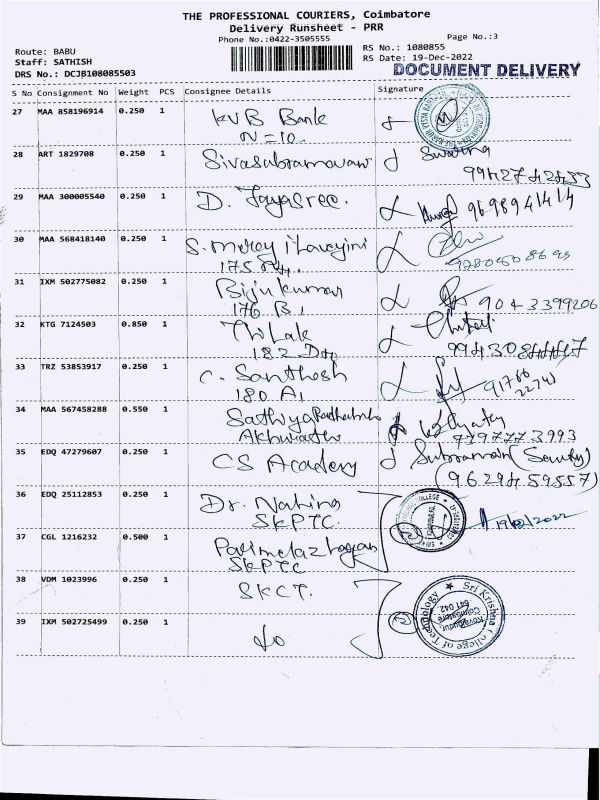 THE PROFESSIONAL COURIERS, Coimbatore
Delivery Runsheet - PRR
Phone No.:0422-3505555
Page No.:3
Route: BABU
RS No.: 1080855
Staff: SATHISH
RS Date: 19-Dec-2022
DRS No.: DCJB108085503
DOCUMENT DELIVERY
S No Consignment No Weight PCS Consignee Details Signature
27 MAA 858196914 0.250 1 KVB Bank
N=10.
28 ART 1829708 0.250 1 Sivasubramaniam
29 MAA 300005540 0.250 1 D. Jayasree. 9698941414
30 MAA 568418140 0.250 1 S. Mercy
175
31 IXM 502775082 0.250 1 Bijukumar 9043399206
176 B1
32 KTG 7124503 0.850 1 Thilak
182
33 TRZ 53853917 0.250 1 C. Santhosh
180 A1
34 MAA 567458288 0.550 1 Sathya
35 EDQ 47279607 0.250 1 CS Academy Subramani (Security)
(9629459557)
36 EDQ 25112853 0.250 1 Dr. 
SKPTC. 19/12/2022
37 CGL 1216232 0.500 1
SKPTC
38 VDM 1023996 0.250 1 SKCT.
39 IXM 502725499 0.250 1 do
Sri Krishna College of Technology
Kovaipudur,
Coimbatore
641 042.